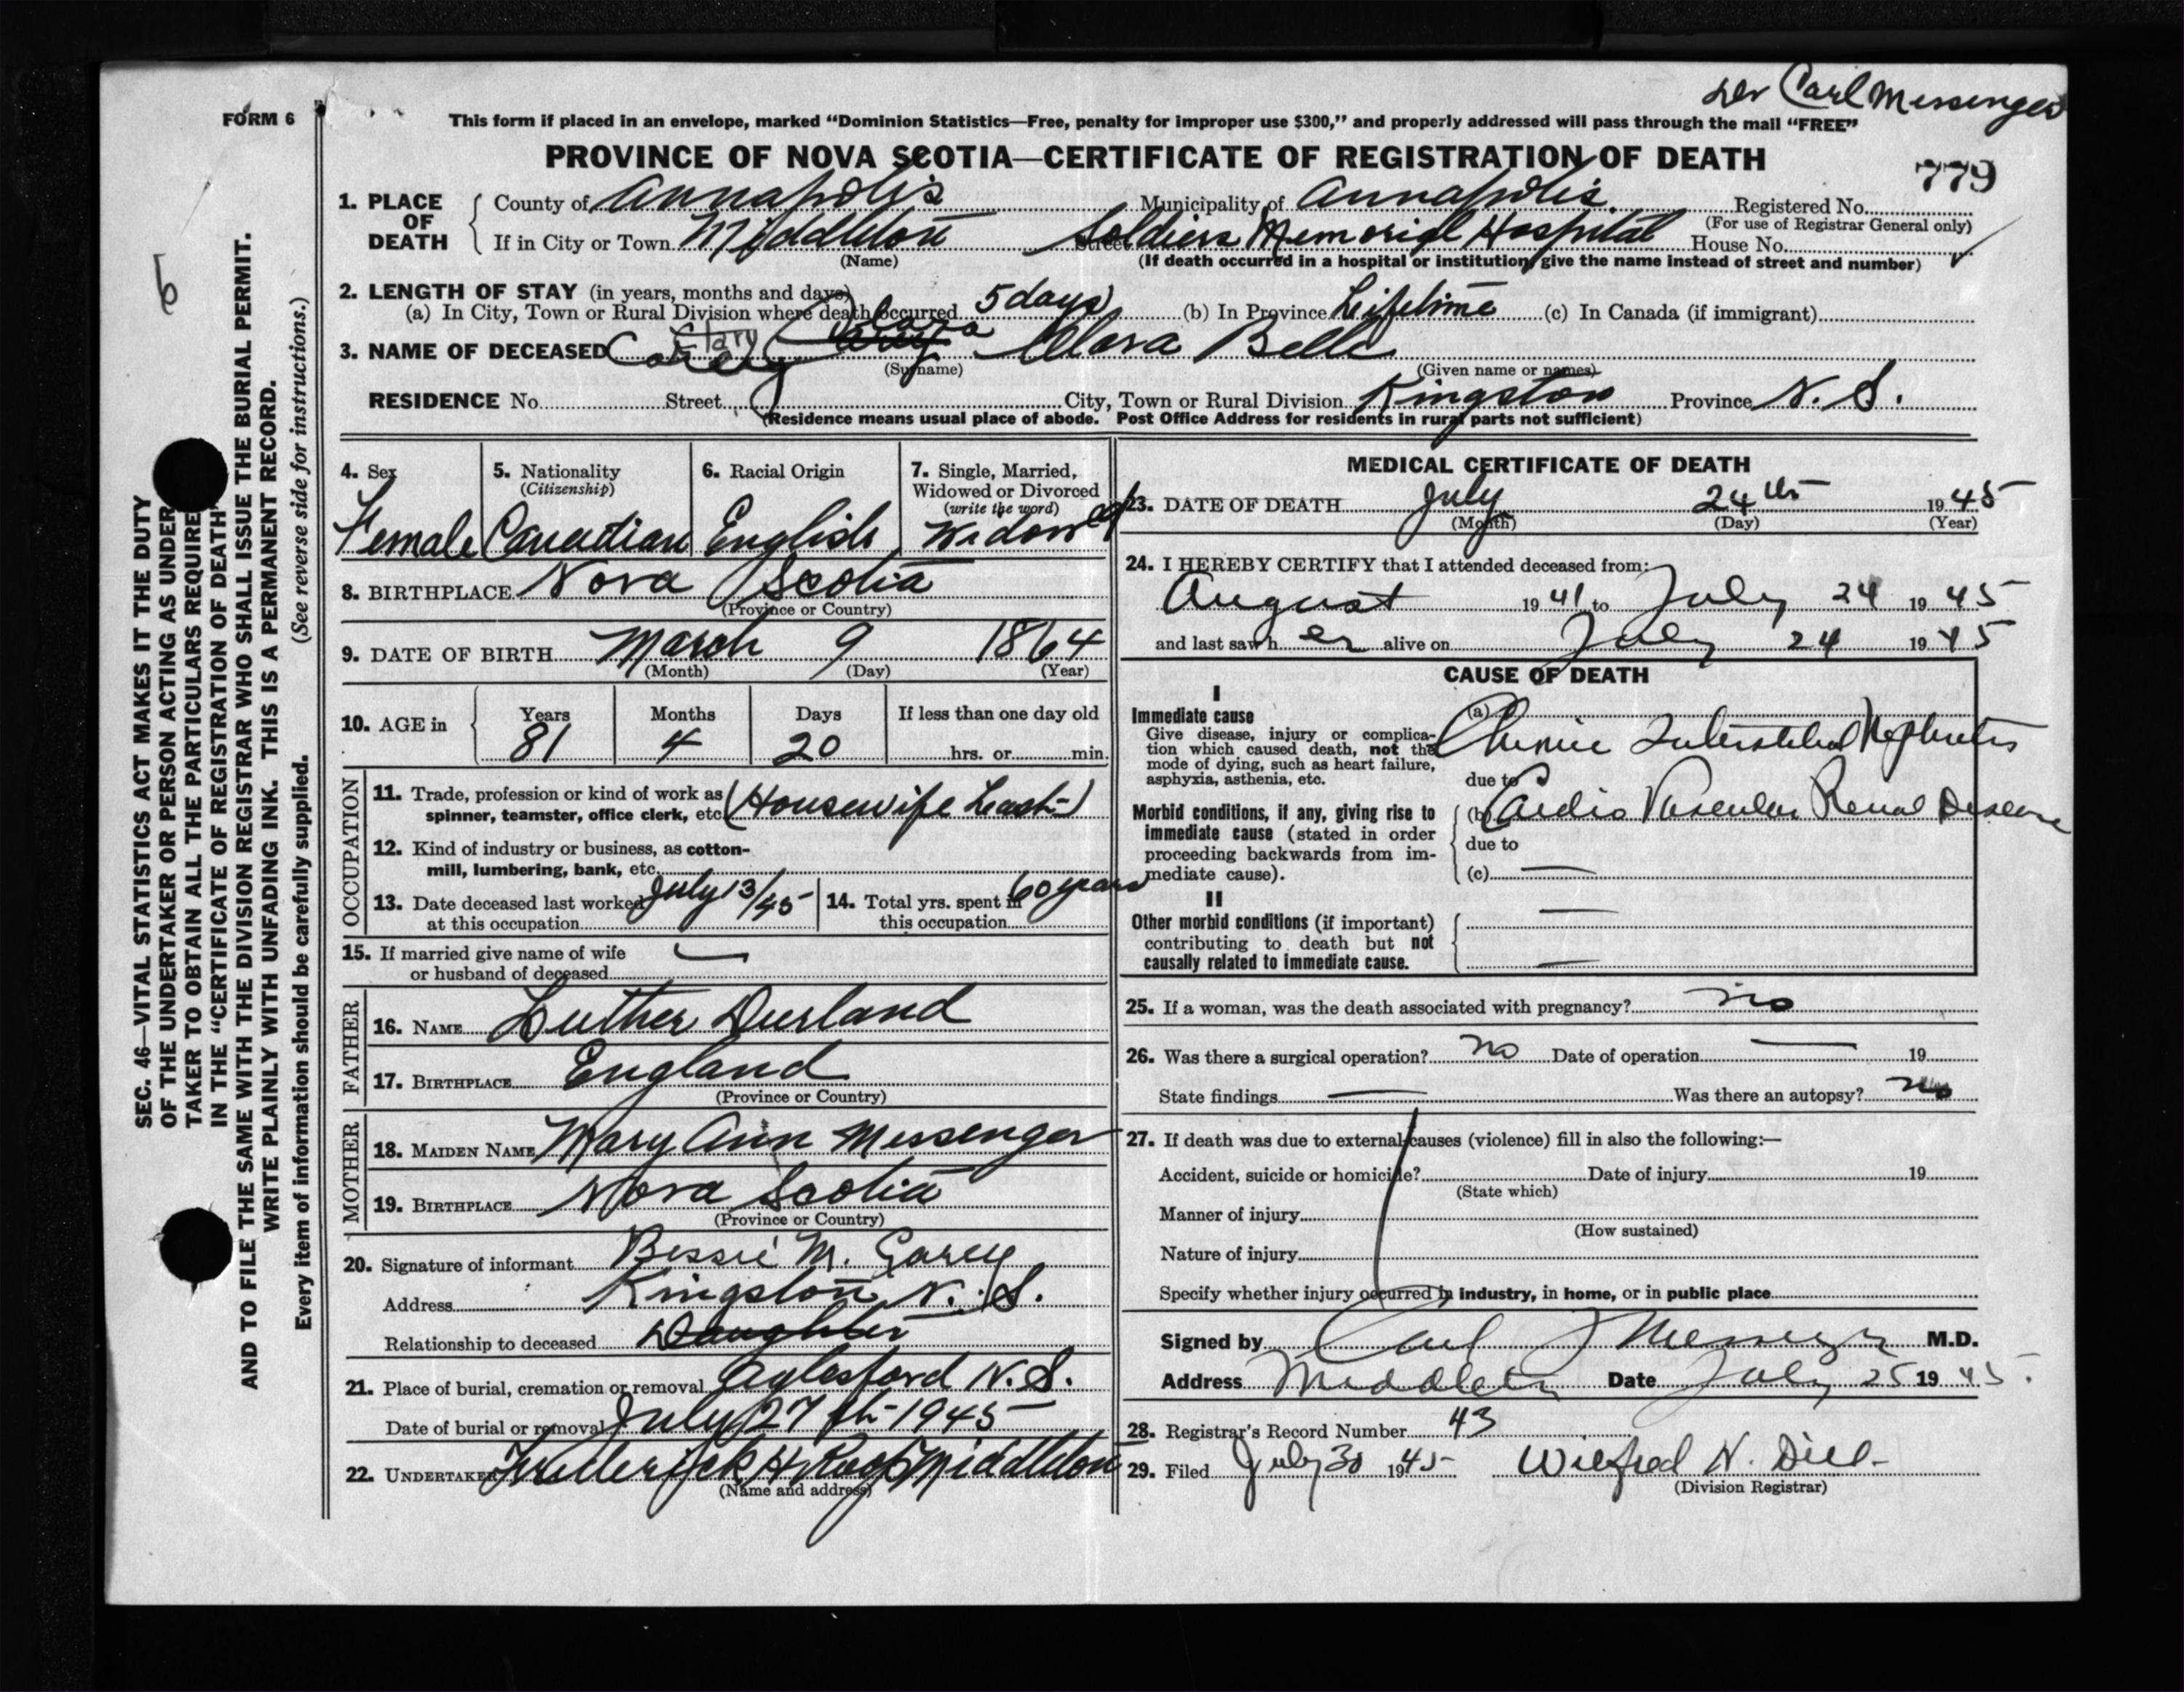 Dr Carl Messenger
FORM 6
This form if placed in an envelope, marked “Dominion Statistics—Free, penalty for improper use $300,” and properly addressed will pass through the mail “FREE”
PROVINCE OF NOVA SCOTIA—CERTIFICATE OF REGISTRATION OF DEATH
779
1. PLACE OF DEATH County of Annapolis Municipality of Annapolis. Registered No.
(For use of Registrar General only)
If in City or Town Middleton Street Soldiers Memorial Hospital House No.
(Name) (If death occurred in a hospital or institution, give the name instead of street and number)
2. LENGTH OF STAY (in years, months and days)
(a) In City, Town or Rural Division where death occurred 5 days (b) In Province Lifetime (c) In Canada (if immigrant)
3. NAME OF DECEASED Clara Belle
(Surname) (Given name or names)
RESIDENCE No. Street City, Town or Rural Division Kingston Province N. S.
(Residence means usual place of abode. Post Office Address for residents in rural parts not sufficient)
4. Sex Female
5. Nationality (Citizenship) Canadian
6. Racial Origin English
7. Single, Married, Widowed or Divorced (write the word) Widowed
8. BIRTHPLACE Nova Scotia
(Province or Country)
9. DATE OF BIRTH March 9 1864
(Month) (Day) (Year)
10. AGE in Years Months Days If less than one day old
81 4 20 hrs. or min.
OCCUPATION
11. Trade, profession or kind of work as
spinner, teamster, office clerk, etc. (Housewife Last)
12. Kind of industry or business, as cotton-
mill, lumbering, bank, etc.
13. Date deceased last worked at this occupation July 13/45
14. Total yrs. spent in this occupation 60 years
15. If married give name of wife
or husband of deceased —
FATHER
16. NAME Luther Durland
17. BIRTHPLACE England
(Province or Country)
MOTHER
18. MAIDEN NAME Mary Ann Messenger
19. BIRTHPLACE Nova Scotia
(Province or Country)
20. Signature of informant Bessie M.
Address Kingston N. S.
Relationship to deceased Daughter
21. Place of burial, cremation or removal Aylesford N. S.
Date of burial or removal July 27th 1945
22. UNDERTAKER Frederick H. Middleton
(Name and address)
MEDICAL CERTIFICATE OF DEATH
23. DATE OF DEATH July 24th 1945
(Month) (Day) (Year)
24. I HEREBY CERTIFY that I attended deceased from:
August 1941 to July 24 1945
and last saw her alive on July 24 1945
CAUSE OF DEATH
I
Immediate cause
Give disease, injury or complica-
tion which caused death, not the
mode of dying, such as heart failure,
asphyxia, asthenia, etc.
(a) Chronic Interstitial Nephritis
due to
Morbid conditions, if any, giving rise to
immediate cause (stated in order
proceeding backwards from im-
mediate cause).
(b) Cardio Vascular Renal Disease
due to
(c) —
II
Other morbid conditions (if important)
contributing to death but not
causally related to immediate cause.
25. If a woman, was the death associated with pregnancy? no
26. Was there a surgical operation? no Date of operation — 19
State findings — Was there an autopsy? no
27. If death was due to external causes (violence) fill in also the following:—
Accident, suicide or homicide? Date of injury 19
(State which)
Manner of injury
(How sustained)
Nature of injury
Specify whether injury occurred in industry, in home, or in public place
Signed by Carl Messenger M.D.
Address Middleton Date July 25 1945.
28. Registrar's Record Number 43
29. Filed July 30 1945 Wilfred N. Dill
(Division Registrar)
SEC. 46—VITAL STATISTICS ACT MAKES IT THE DUTY
OF THE UNDERTAKER OR PERSON ACTING AS UNDER
TAKER TO OBTAIN ALL THE PARTICULARS REQUIRE
IN THE “CERTIFICATE OF REGISTRATION OF DEATH”
AND TO FILE THE SAME WITH THE DIVISION REGISTRAR WHO SHALL ISSUE THE BURIAL PERMIT.
WRITE PLAINLY WITH UNFADING INK. THIS IS A PERMANENT RECORD.
Every item of information should be carefully supplied. (See reverse side for instructions.)